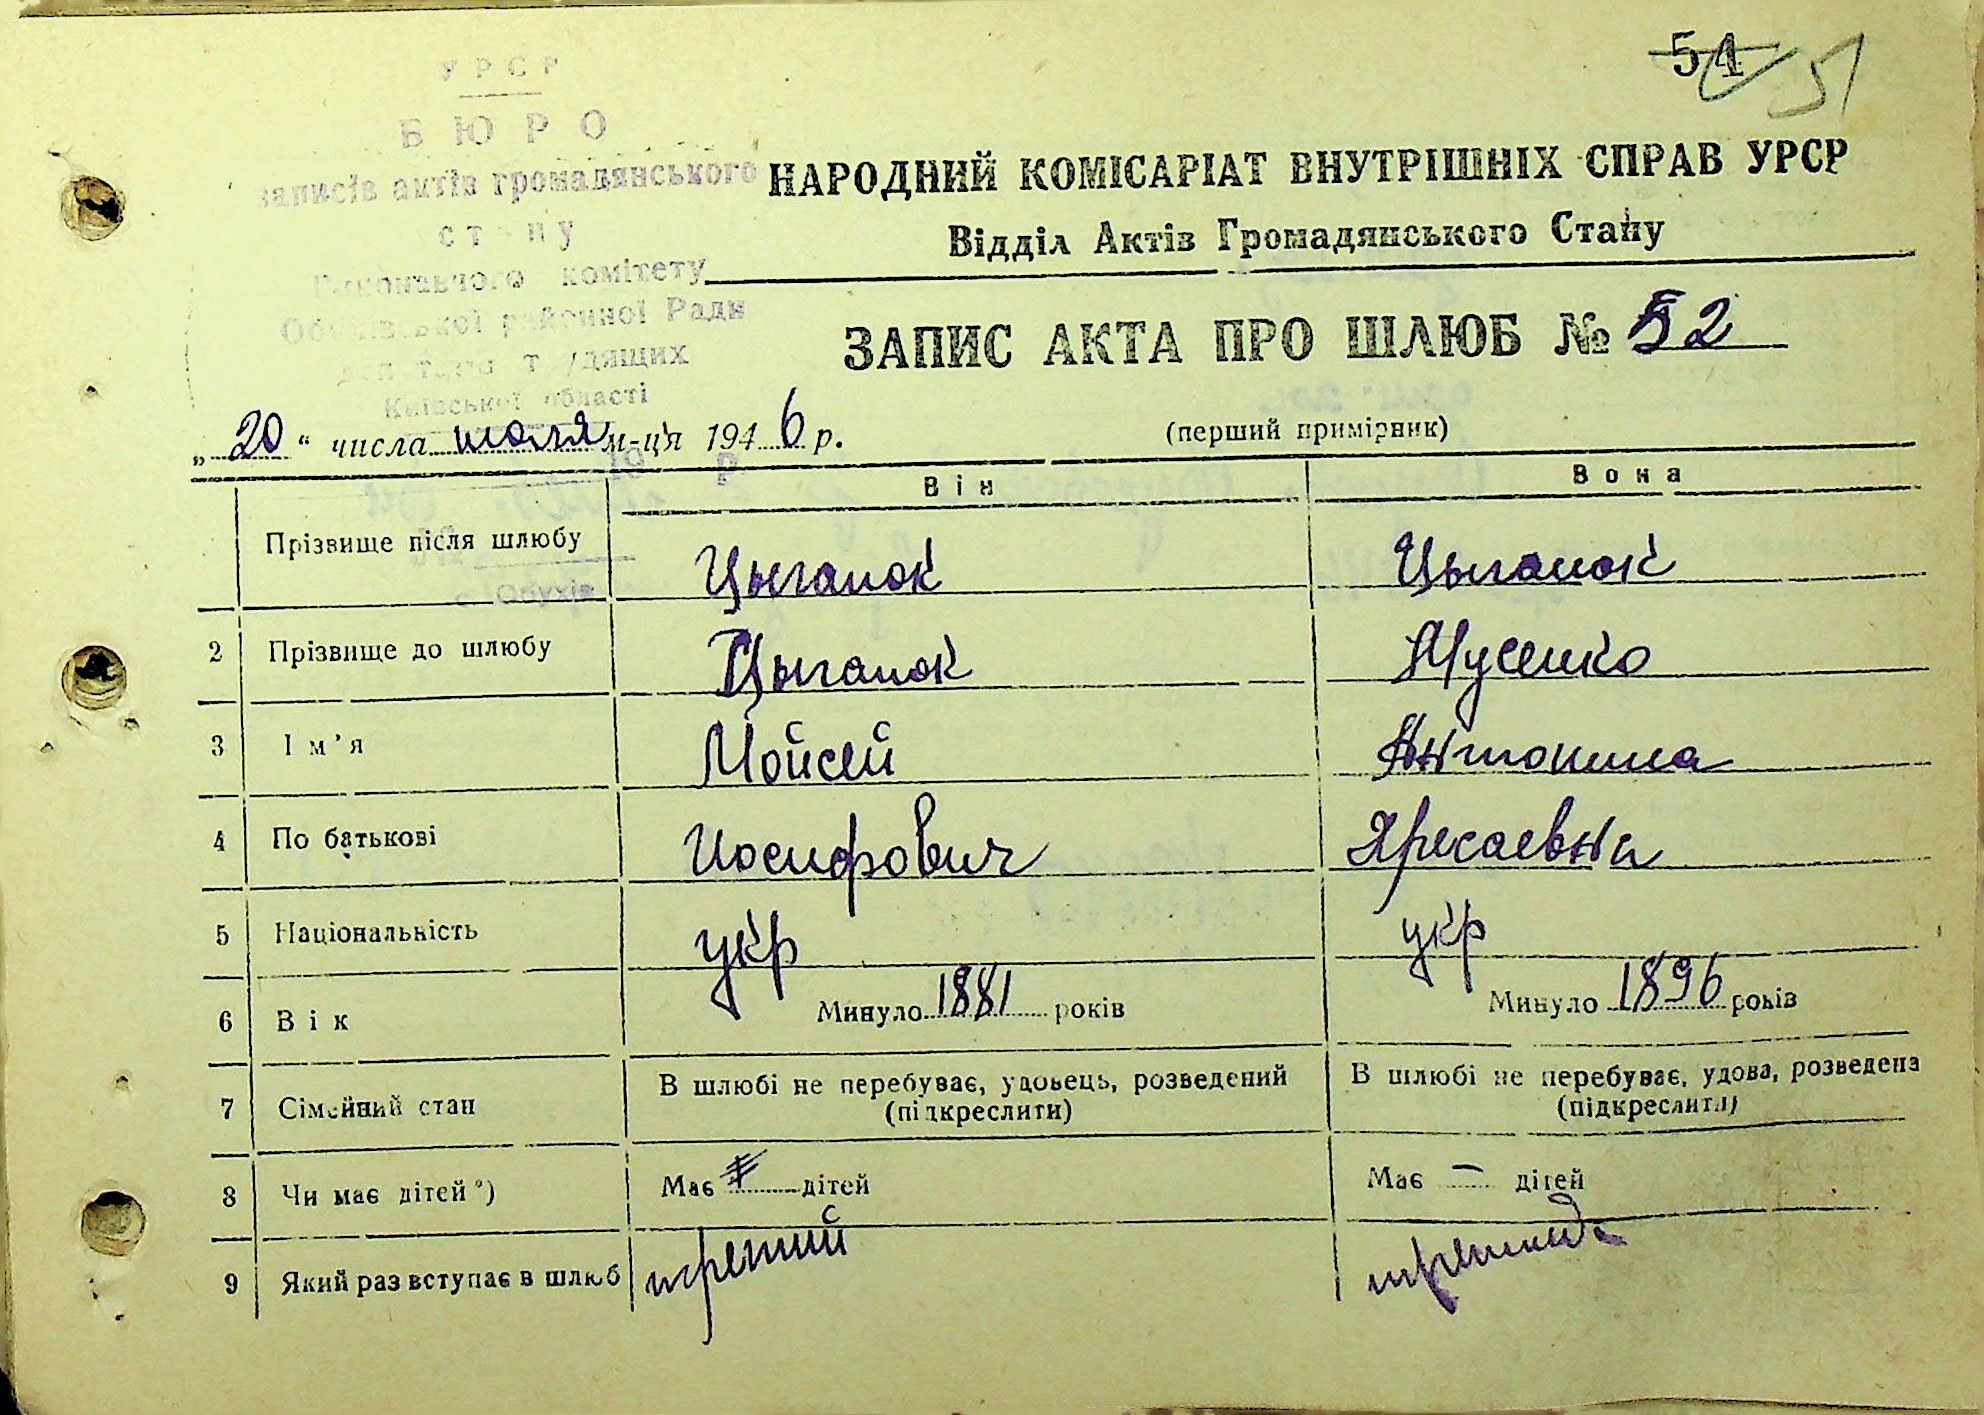 54 51
УРСР
БЮРО
записів актів громадянського
стану
Виконавчого комітету
Обухівської районної Ради
депутатів трудящих
Київської області
НАРОДНИЙ КОМІСАРІАТ ВНУТРІШНІХ СПРАВ УРСР
Відділ Актів Громадянського Стану
ЗАПИС АКТА ПРО ШЛЮБ № 52
„20“ числа июля м-ця 1946 р.
(перший примірник)
19 р
Він Вона
Прізвище після шлюбу Цыганок Цыганок
с. Обухів
2 Прізвище до шлюбу Цыганок Мусенко
3 Ім’я Мойсей Антонина
4 По батькові Иосифович
5 Національність укр укр
6 Вік Минуло 1881 років Минуло 1896 років
7 Сімейний стан В шлюбі не перебуває, удовець, розведений В шлюбі не перебуває, удова, розведена
(підкреслити) (підкреслити)
8 Чи має дітей*) Має дітей Має — дітей
9 Який раз вступає в шлюб третий